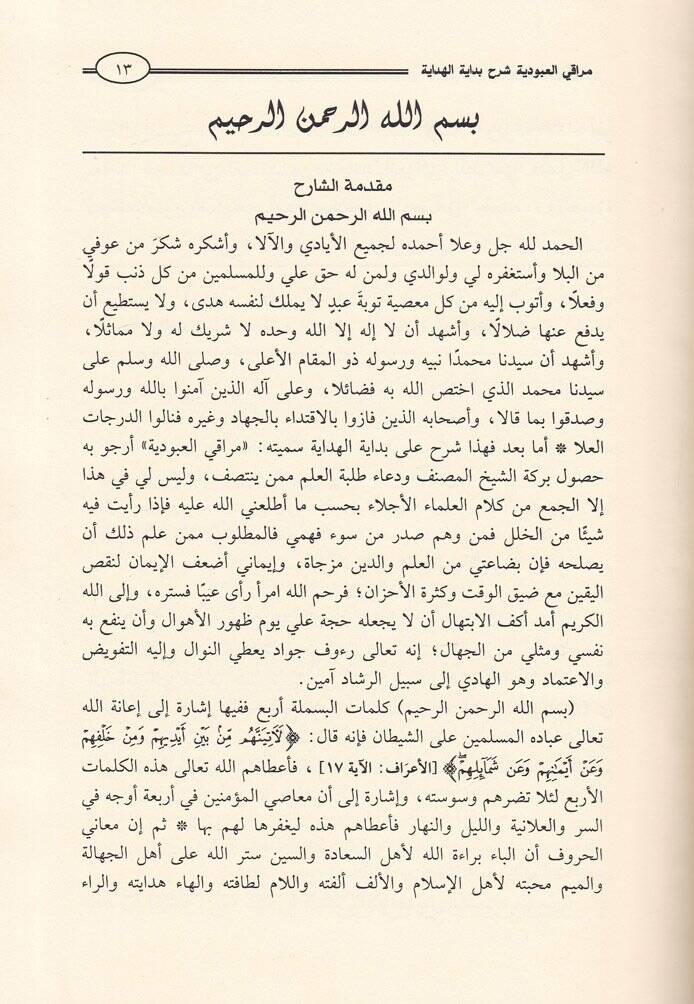 مراقي العبودية شرح بداية الهداية ١٣
بسم الله الرحمن الرحيم
مقدمة الشارح
بسم الله الرحمن الرحيم
الحمد لله جل وعلا أحمده لجميع الأيادي والآلا، وأشكره شكرَ من عوفي
من البلا وأستغفره لي ولوالدي ولمن له حق علي وللمسلمين من كل ذنب قولًا
وفعلًا، وأتوب إليه من كل معصية توبةَ عبدٍ لا يملك لنفسه هدى، ولا يستطيع أن
يدفع عنها ضلالًا، وأشهد أن لا إله إلا الله وحده لا شريك له ولا مماثلًا،
وأشهد أن سيدنا محمدًا نبيه ورسوله ذو المقام الأعلى، وصلى الله وسلم على
سيدنا محمد الذي اختص الله به فضائلا، وعلى آله الذين آمنوا بالله ورسوله
وصدقوا بما قالا، وأصحابه الذين فازوا بالاقتداء بالجهاد وغيره فنالوا الدرجات
العلا * أما بعد فهذا شرح على بداية الهداية سميته: «مراقي العبودية» أرجو به
حصول بركة الشيخ المصنف ودعاء طلبة العلم ممن ينتصف، وليس لي في هذا
إلا الجمع من كلام العلماء الأجلاء بحسب ما أطلعني الله عليه فإذا رأيت فيه
شيئًا من الخلل فمن وهم صدر من سوء فهمي فالمطلوب ممن علم ذلك أن
يصلحه فإن بضاعتي من العلم والدين مزجاة، وإيماني أضعف الإيمان لنقص
اليقين مع ضيق الوقت وكثرة الأحزان؛ فرحم الله امرأ رأى عيبًا فستره، وإلى الله
الكريم أمد أكف الابتهال أن لا يجعله حجة علي يوم ظهور الأهوال وأن ينفع به
نفسي ومثلي من الجهال؛ إنه تعالى رءوف جواد يعطي النوال وإليه التفويض
والاعتماد وهو الهادي إلى سبيل الرشاد آمين.
(بسم الله الرحمن الرحيم) كلمات البسملة أربع ففيها إشارة إلى إعانة الله
تعالى عباده المسلمين على الشيطان فإنه قال: ﴿لَآتِيَنَّهُم مِّنۢ بَيۡنِ أَيۡدِيهِمۡ وَمِنۡ خَلۡفِهِمۡ
وَعَنۡ أَيۡمَٰنِهِمۡ وَعَن شَمَآئِلِهِمۡۖ﴾ [الأعراف: الآية ١٧] ، فأعطاهم الله تعالى هذه الكلمات
الأربع لئلا تضرهم وسوسته، وإشارة إلى أن معاصي المؤمنين في أربعة أوجه في
السر والعلانية والليل والنهار فأعطاهم هذه ليغفرها لهم بها * ثم إن معاني
الحروف أن الباء براءة الله لأهل السعادة والسين ستر الله على أهل الجهالة
والميم محبته لأهل الإسلام والألف ألفته واللام لطافته والهاء هدايته والراء